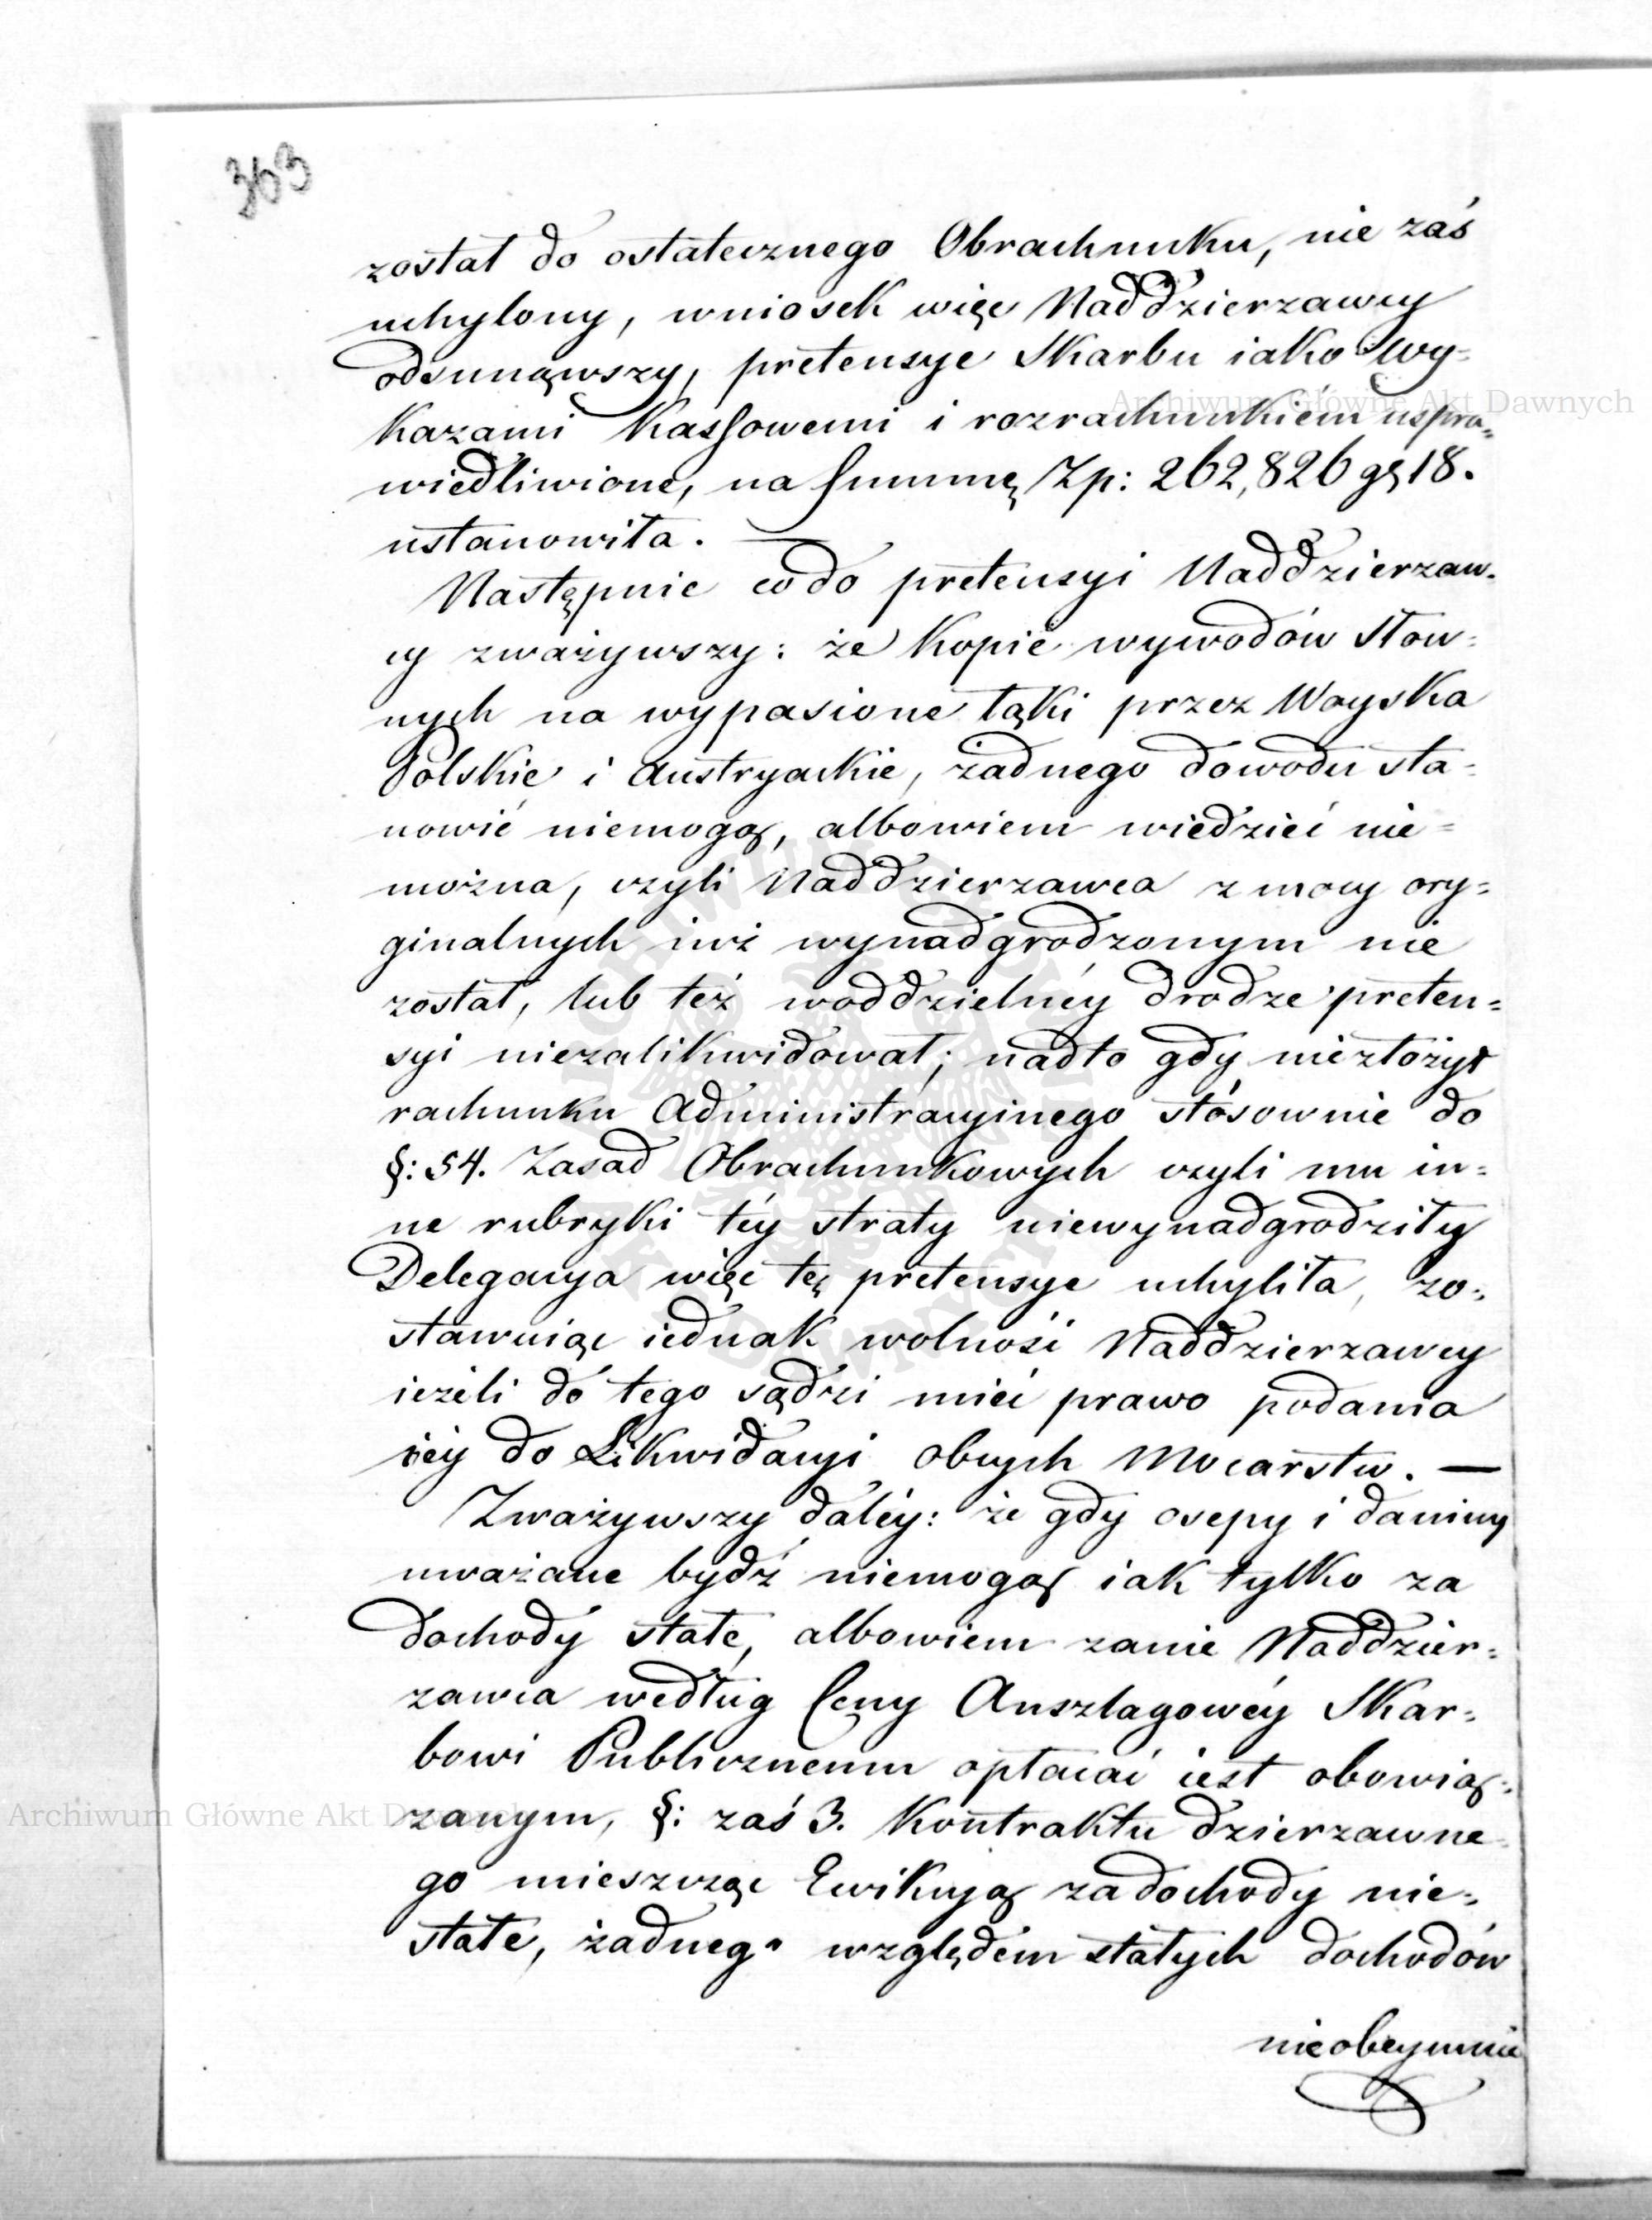 363
został do ostatecznego Obrachunku, nie zaś
uchylony, wniosek więc Naddzierzawcy
odsunąwszy, pretensye Skarbu iako Wy-
kazami Kassowemi i rozrachunkiém uspra-
wiedliwione, na Summę Zp: 262,826 gr 18.
ustanowiła. —
Następnie co do pretensyi Naddzierzaw-
cy zważywszy: że Kopie wywodów słow-
nych na wypasione łąki przez Woyska
Polskie i Austryackie, żadnego dowodu sta-
nowić niemogą, albowiem wiedzieć nie-
można, czyli Naddzierzawca z mocy ory-
ginalnych iuż wynadgrodzonym nie
został, lub też woddzielnéy drodze preten-
syi niezalikwidował; nadto gdy niezłożył
rachunku Administracyinego stósownie do
§: 54. Zasad Obrachunkowych czyli mu in-
ne rubryki téy straty niewynadgrodziły
Delegacya więc tę pretensye uchyliła, zo-
stawuiąc iednak wolność Naddzierzawcy
ieżeli do tego sądzi mieć prawo podania
iéy do Likwidacyi obcych Mocarstw. —
Zważywszy daléy: że gdy osepy i daniny
uważane bydź niemogą iak tylko za
dochody stałe, albowiem zanie Naddzier-
zawca według Ceny Anszlagowéy Skar-
bowi Publicznemu opłacać iest obowią-
zanym, §: zaś 3. Kontraktu dzierzawne-
go mieszcząc Ewikcyą za dochody nie-
stałe, żadnego względem stałych dochodów
nieobeymuie
Archiwum Główne Akt Dawnych
Archiwum Główne Akt Dawnych